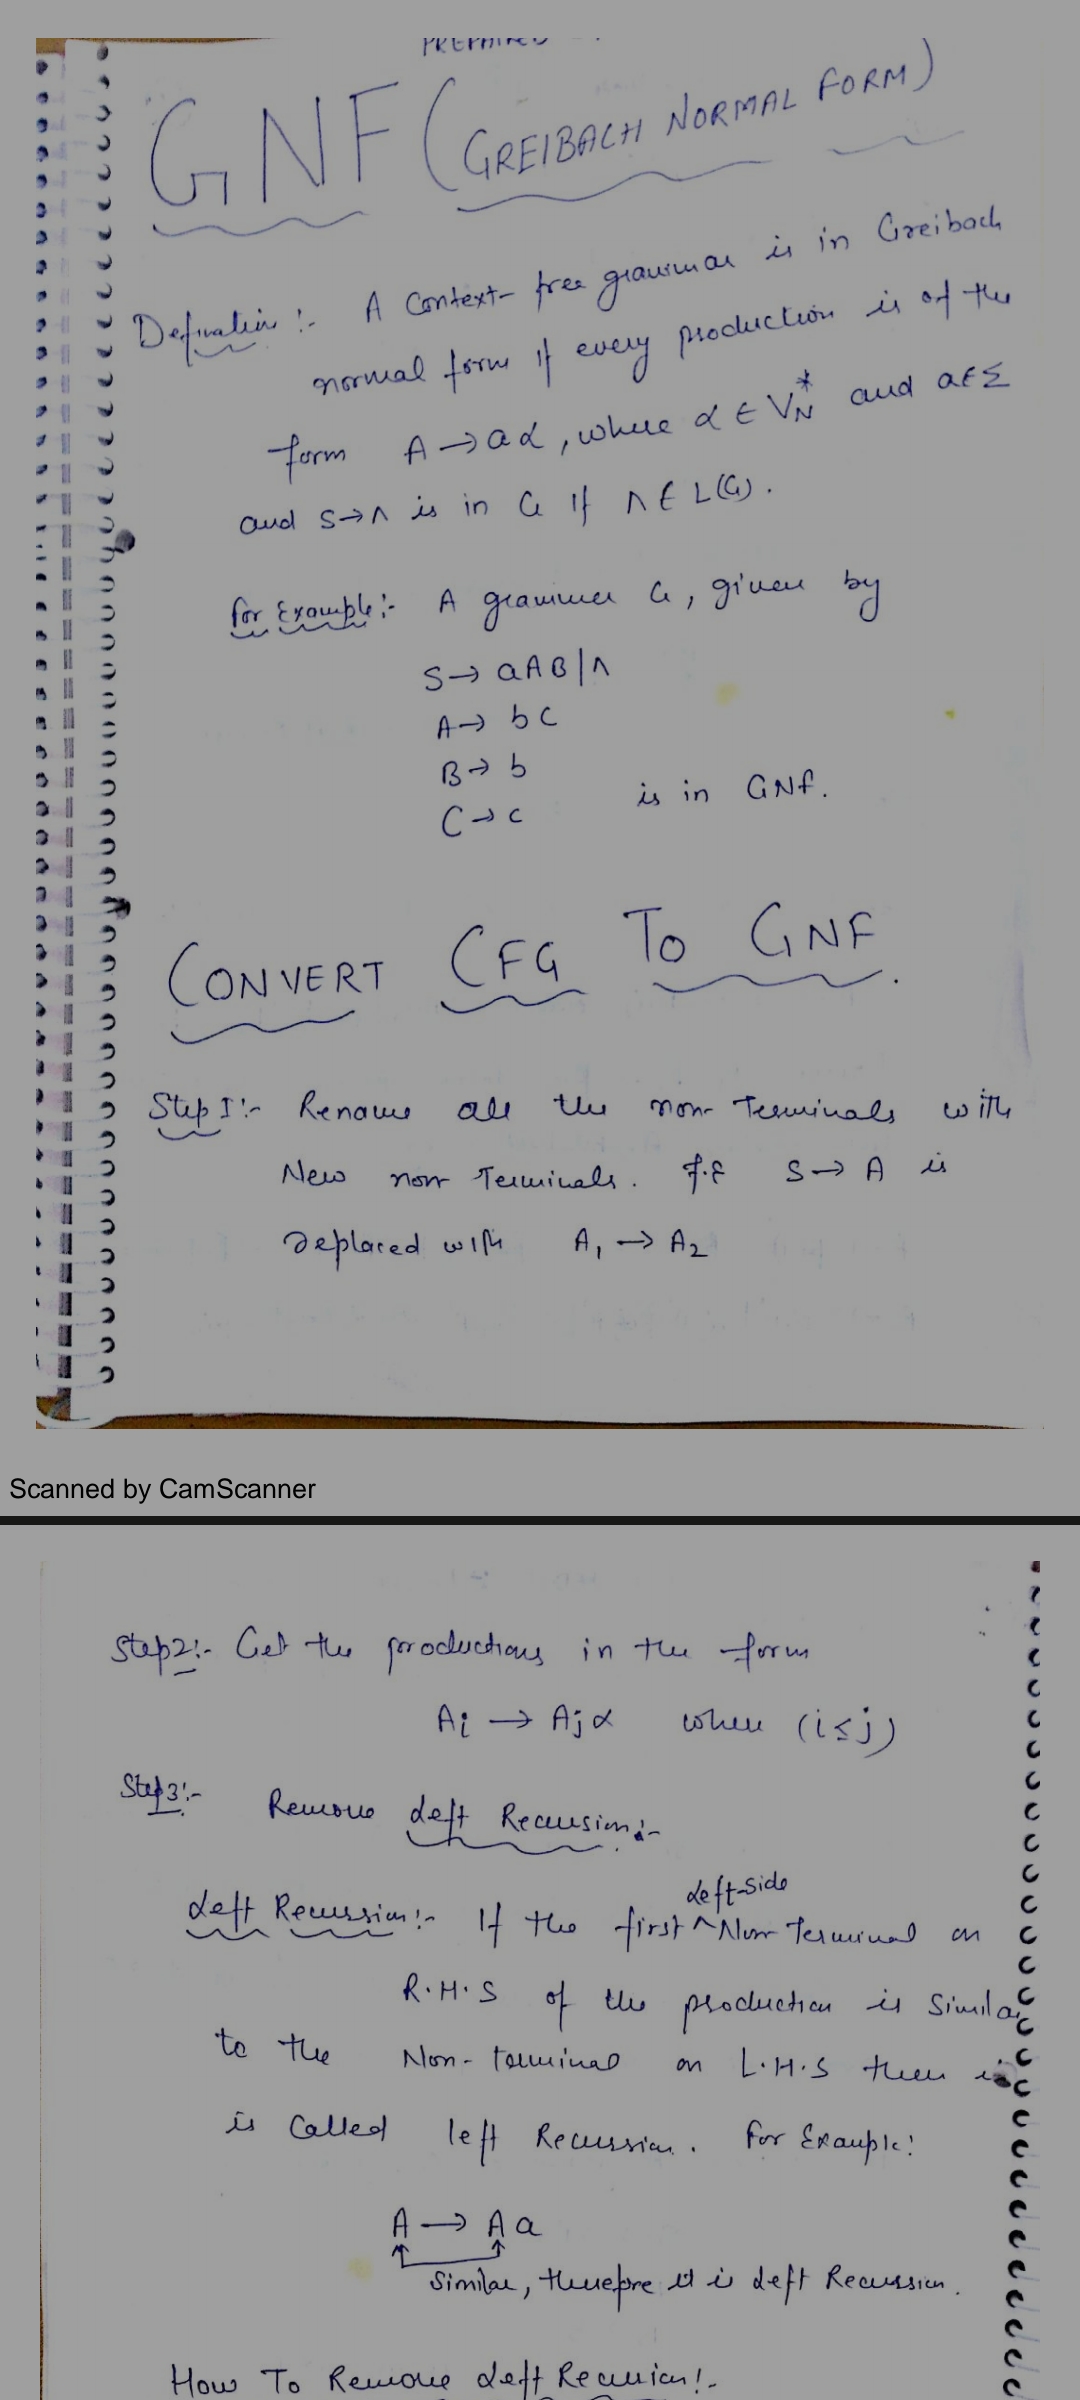 GNF (GREIBACH NORMAL FORM)
Defination :- A Context-free grammar is in Greibach
normal form if every production is of the
form A → aα, where α ∈ V_N^* and a ∈ Σ
and S→Λ is in G if Λ ∈ L(G).
For Example:- A grammer G, given by
S→ aAB|Λ
A→ bC
B→ b
C→c is in GNF.
CONVERT CFG TO GNF.
Step 1:- Rename all the non-Terminals with
New non Terminals. S→ A is
Replaced with A₁ → A₂
Scanned by CamScanner
Step2:- Get the productions in the form
Ai → Ajα when (i≤j)
Step3:- Remove Left Recursion:-
Left Recussion:- If the first ^ left-side Non Terminal on
R.H.S of the production is Similar
to the Non-terminal on L.H.S then
is Called left Recussion. For Example:
A → A a
Similar, therefore it is Left Recussion.
How To Remove Left Recussion:-